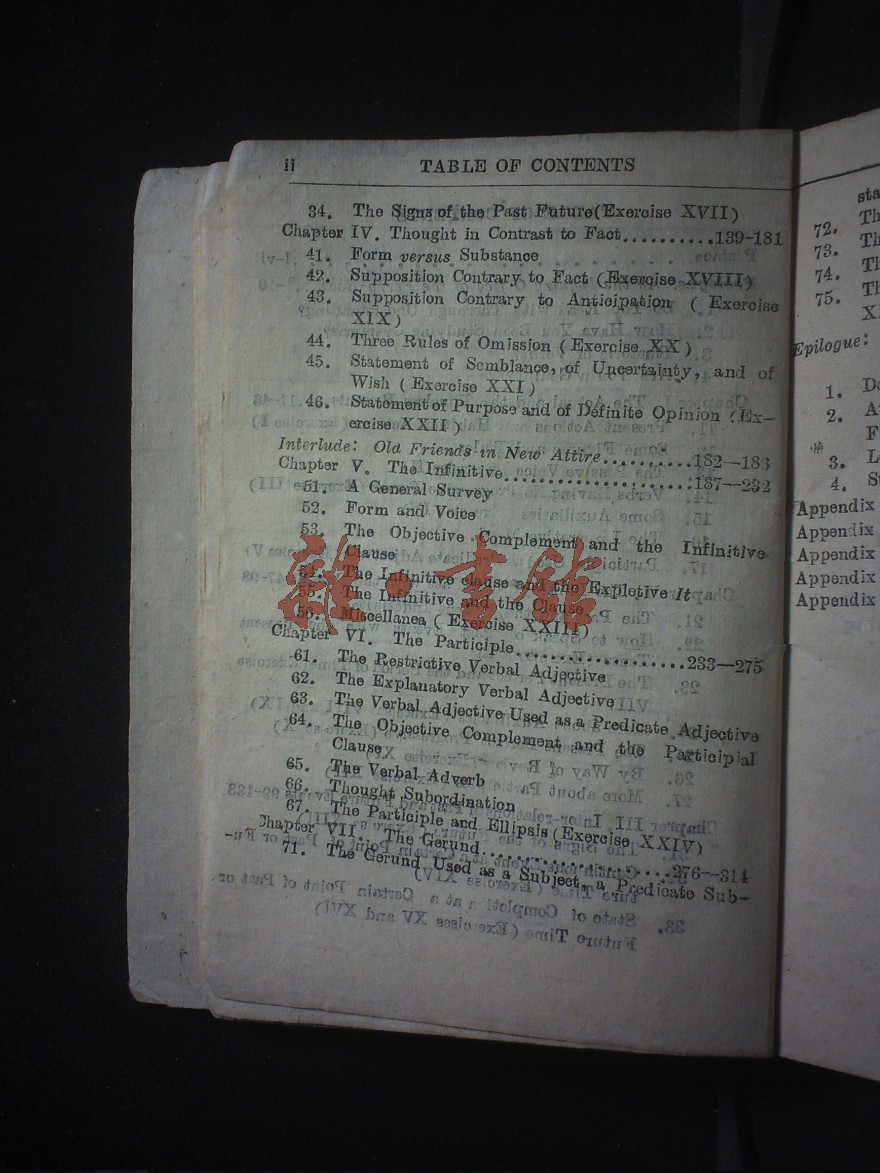 ii TABLE OF CONTENTS
34. The Signs of the Past Future(Exercise XVII)
Chapter IV. Thought in Contrast to Fact..........139-181
41. Form versus Substance
42. Supposition Contrary to Fact (Exercise XVIII)
43. Supposition Contrary to Anticipation ( Exercise
XIX)
44. Three Rules of Omission ( Exercise XX )
45. Statement of Semblance, of Uncertainty, and of
Wish ( Exercise XXI )
46. Statement of Purpose and of Definite Opinion (Ex-
ercise XXII )
Interlude: Old Friends in New Attire..........182—183
Chapter V. The Infinitive....................187—232
51. A General Survey
52. Form and Voice
53. The Objective Complement and the Infinitive
Clause
54. The Infinitive clause and the Expletive It
55. The Infinitive and the Clause
56. Miscellanea ( Exercise XXIII)
Chapter VI. The Participle..................233—275
61. The Restrictive Verbal Adjective
62. The Explanatory Verbal Adjective
63. The Verbal Adjective Used as a Predicate Adjective
64. The Objective Complement and the Participial
Clause
65. The Verbal Adverb
66. Thought Subordination
67. The Participle and Ellipsis (Exercise XXIV)
Chapter VII. The Gerund....................276—314
71. The Gerund Used as a Subject, a Predicate Sub-
72. Th
73. Th
74. Th
75. Th
X
Epilogue:
1.
2. A
F
3. L
4. S
Appendix
Appendix
Appendix
Appendix
Appendix
書館